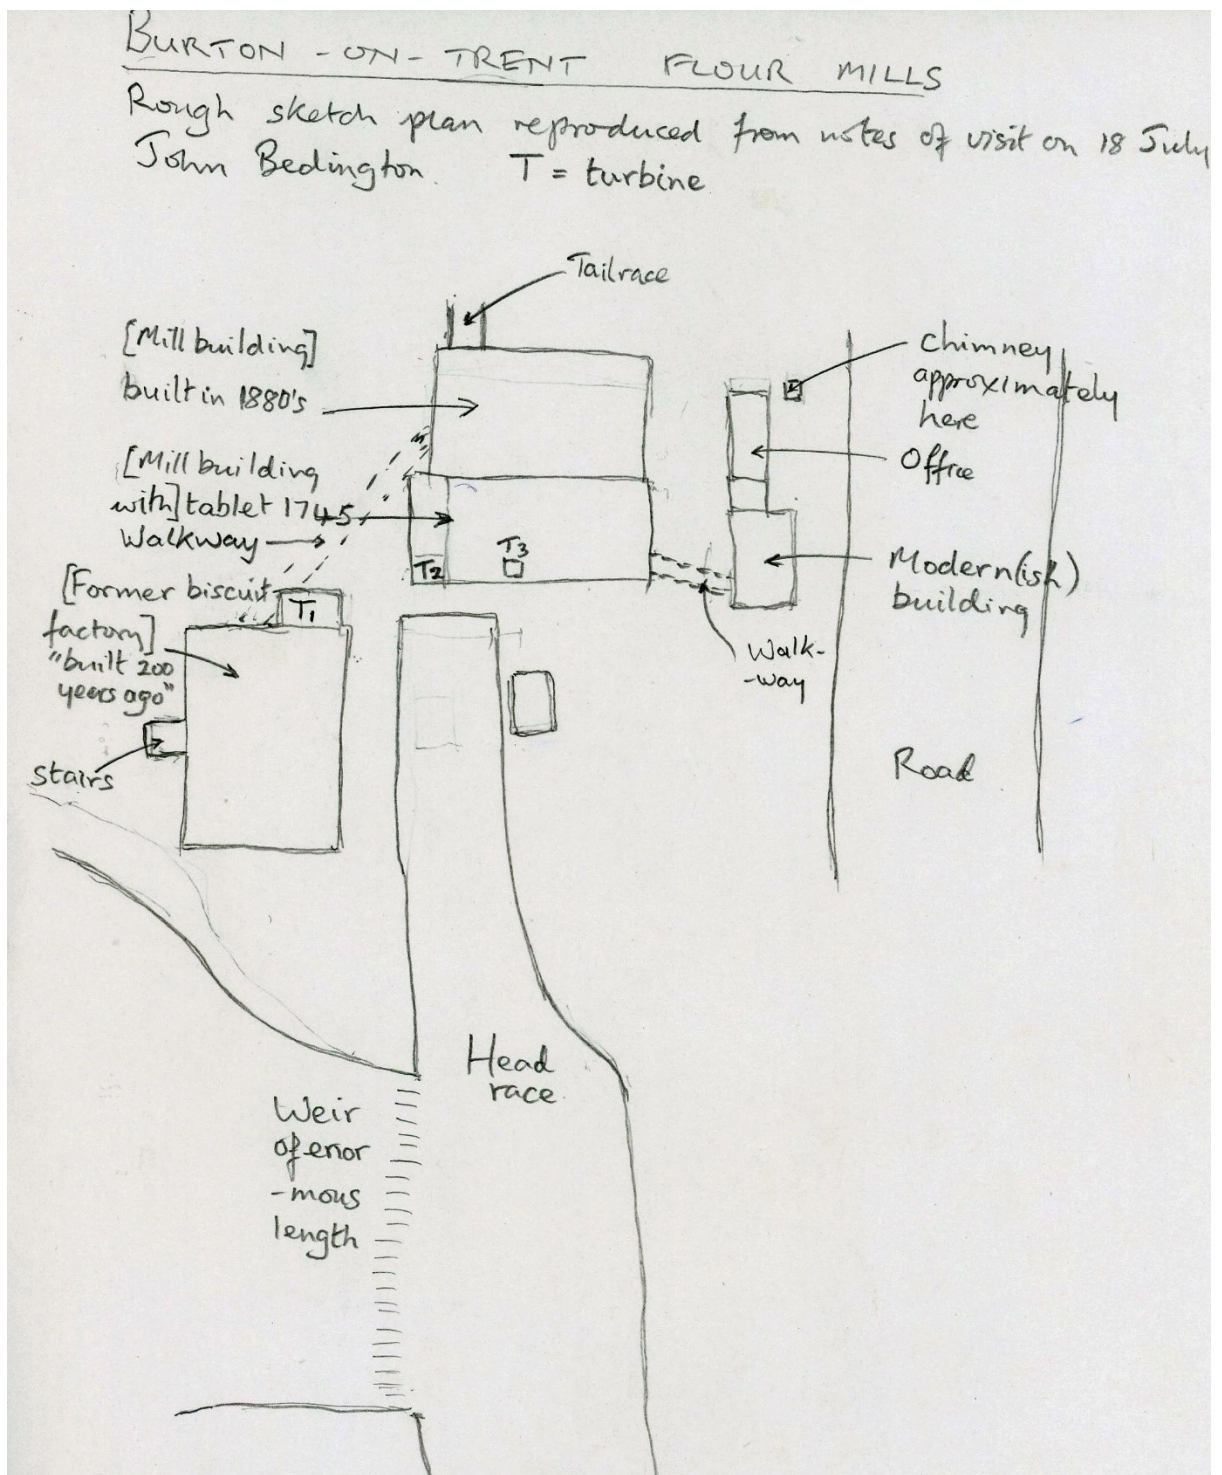 BURTON-ON-TRENT FLOUR MILLS
Rough sketch plan reproduced from notes of visit on 18 July
John Bedington. T = turbine
Tailrace
[Mill building]
built in 1880's
chimney
approximately
here
Office
[Mill building
with] tablet 1745
Walkway
T3
T2
Modern(ish)
building
[Former biscuit
factory]
"built 200
years ago"
T1
Walk-
-way
Stairs
Road
Head
race
Weir
of enor
-mous
length